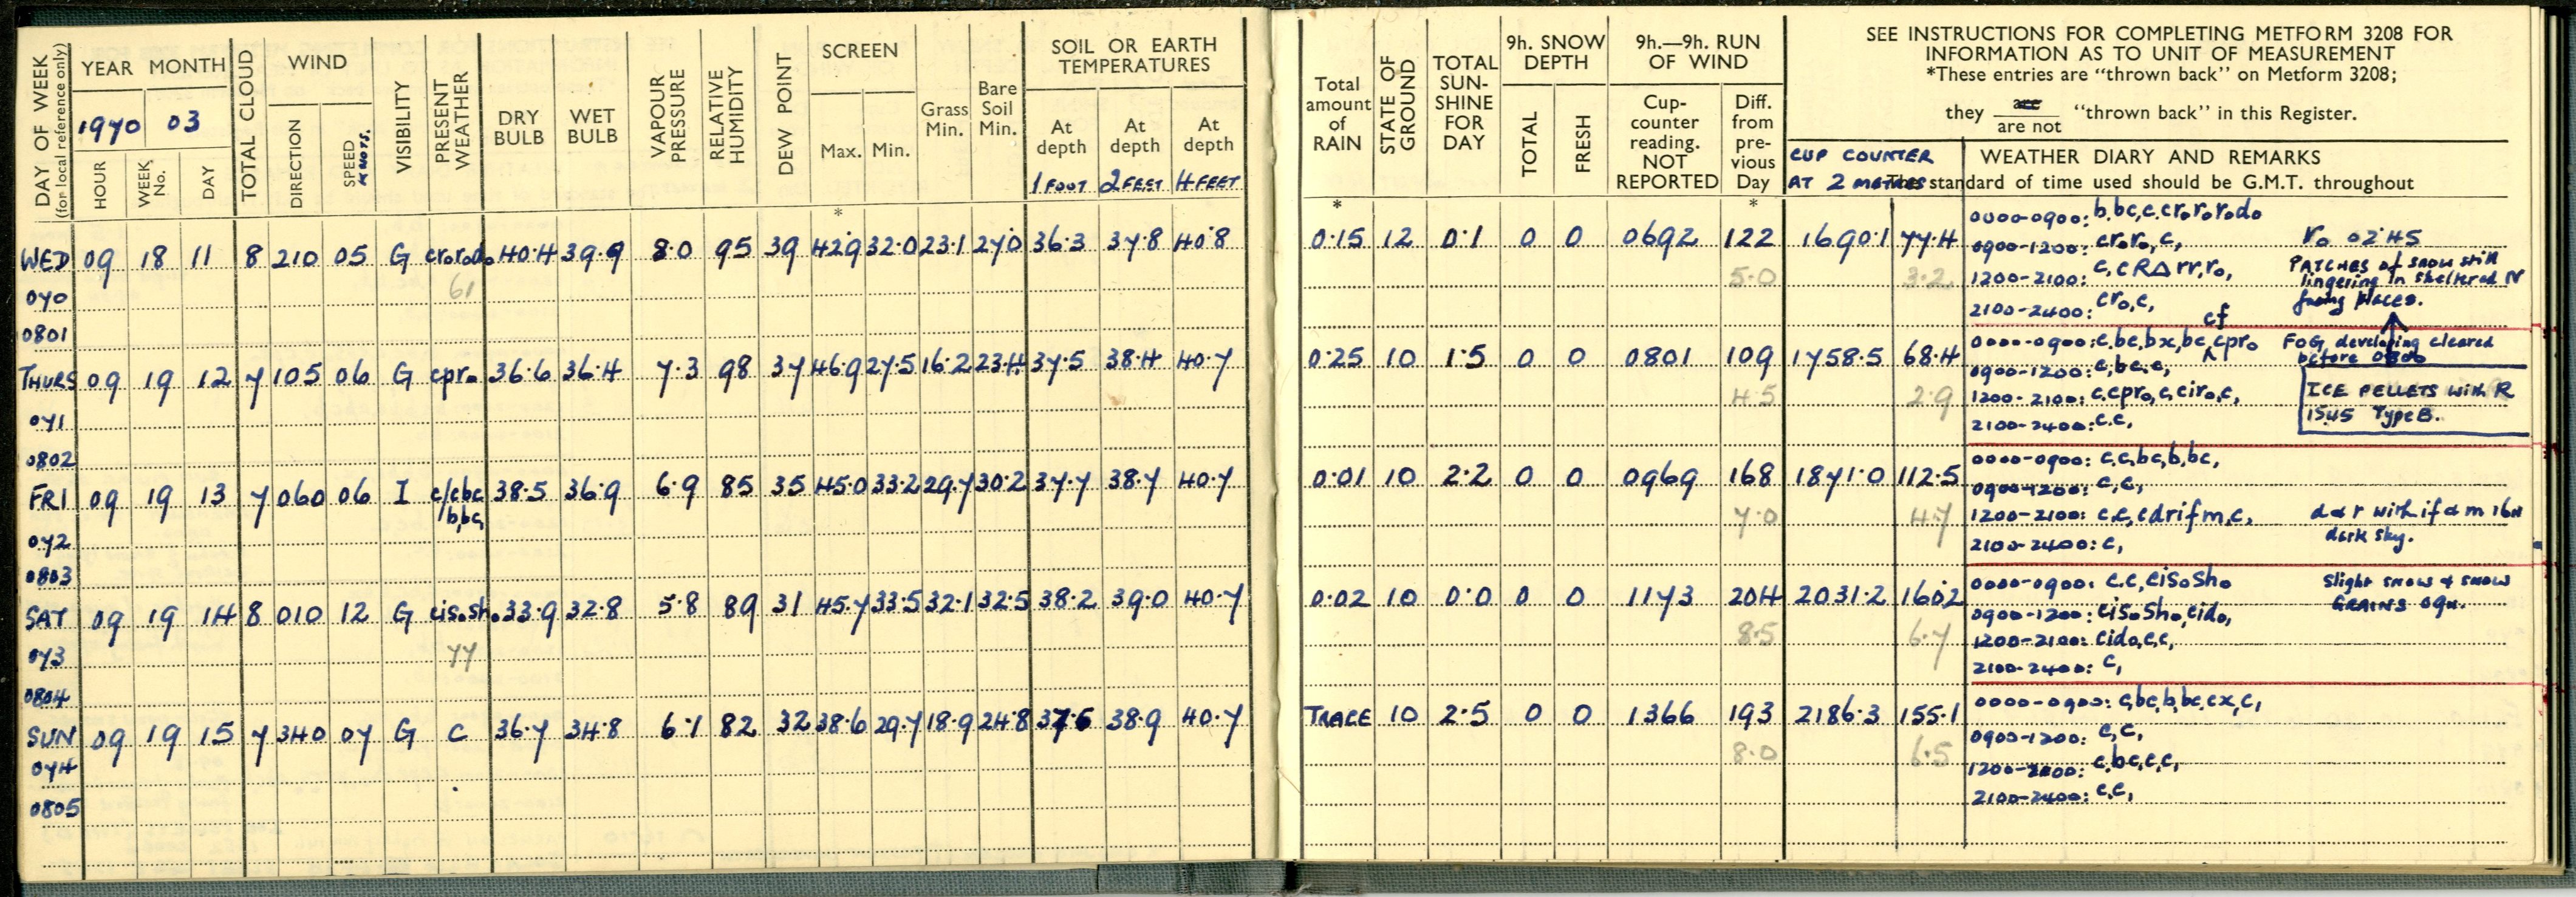 DAY OF WEEK (for local reference only)
YEAR MONTH
1970 03
HOUR WEEK No. DAY
TOTAL CLOUD
WIND
DIRECTION SPEED KNOTS.
VISIBILITY
PRESENT WEATHER
DRY BULB
WET BULB
VAPOUR PRESSURE
RELATIVE HUMIDITY
DEW POINT
SCREEN
Max. Min.
*
Grass Min.
Bare Soil Min.
SOIL OR EARTH TEMPERATURES
At depth At depth At depth
1 FOOT 2 FEET 4 FEET
WED 09 18 11 8 210 05 G cr₀r₀d₀ 40.4 39.9 8.0 95 39 42.9 32.0 23.1 27.0 36.3 37.8 40.8
61
070
0801
THURS 09 19 12 7 105 06 G cpr₀ 36.6 36.4 7.3 98 37 46.9 27.5 16.2 23.4 37.5 38.4 40.7
071
0802
FRI 09 19 13 7 060 06 I c/cbc 38.5 36.9 6.9 85 35 45.0 33.2 29.7 30.2 37.7 38.7 40.7
/b,bc,
072
0803
SAT 09 19 14 8 010 12 G cis₀sh₀ 33.9 32.8 5.8 89 31 45.7 33.5 32.1 32.5 38.2 39.0 40.7
77
073
0804
SUN 09 19 15 7 340 07 G c 36.7 34.8 6.1 82 32 38.6 29.7 18.9 24.8 37.5 38.9 40.7
074
0805
Total amount of RAIN
*
STATE OF GROUND
TOTAL SUN-SHINE FOR DAY
9h. SNOW DEPTH
TOTAL FRESH
9h.—9h. RUN OF WIND
Cup-counter reading. NOT REPORTED
Diff. from pre-vious Day
*
SEE INSTRUCTIONS FOR COMPLETING METFORM 3208 FOR
INFORMATION AS TO UNIT OF MEASUREMENT
*These entries are "thrown back" on Metform 3208;
they are / are not "thrown back" in this Register.
CUP COUNTER
AT 2 METRES
WEATHER DIARY AND REMARKS
The standard of time used should be G.M.T. throughout
0.15 12 0.1 0 0 0692 122 1690.1 77.4
5.0 3.2
0000-0900: b,bc,c,cr₀r₀r₀d₀
0900-1200: cr₀r₀,c, r₀ 0245
1200-2100: c,cRΔrr,r₀,
2100-2400: cr₀,c,
PATCHES of SNOW still
lingering in sheltered N
facing places.
0.25 10 1.5 0 0 0801 109 1758.5 68.4
4.5 2.9
cf
0000-0900: c,bc,bx,bc,cpr₀
0900-1200: c,bc,c,
1200-2100: c,cpr₀,c,cir₀,c,
2100-2400: c,c,
FOG, developing cleared
before 0800
ICE PELLETS with R
1545 Type B.
0.01 10 2.2 0 0 0969 168 1871.0 112.5
7.0 4.7
0000-0900: c,c,bc,b,bc,
0900-1200: c,c,
1200-2100: c,c,cdrifm,c,
2100-2400: c,
d & r with if & m 16H
dark sky.
0.02 10 0.0 0 0 1173 204 2031.2 160.2
8.5 6.7
0000-0900: c,c,cis₀sh₀
0900-1200: cis₀sh₀,cid₀,
1200-2100: cid₀,c,c,
2100-2400: c,
Slight snow & snow
GRAINS 09H.
TRACE 10 2.5 0 0 1366 193 2186.3 155.1
8.0 6.5
0000-0900: c,bc,b,bc,cx,c,
0900-1200: c,c,
1200-2100: c,bc,c,c,
2100-2400: c,c,